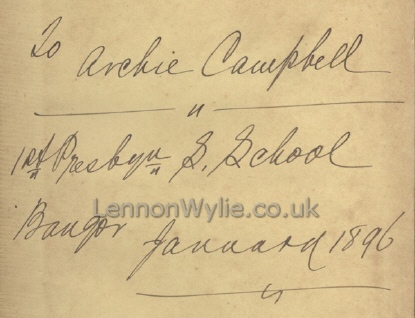 To Archie Campbell
"
1st Presbyn S. School
LennonWylie.co.uk
Bangor January 1896